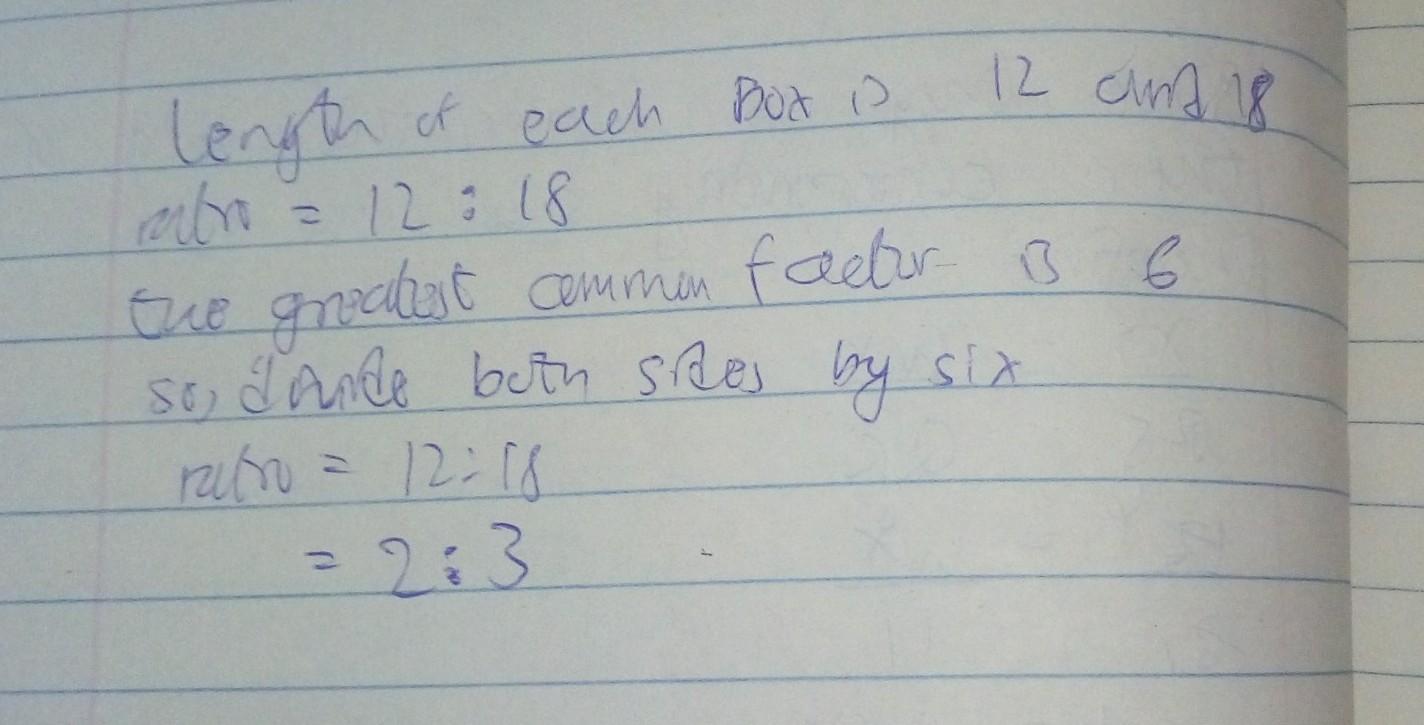 length of each Box is 12 and 18
ratio = 12 : 18
the greatest common factor is 6
so, divide both sides by six
ratio = 12 : 18
= 2 : 3